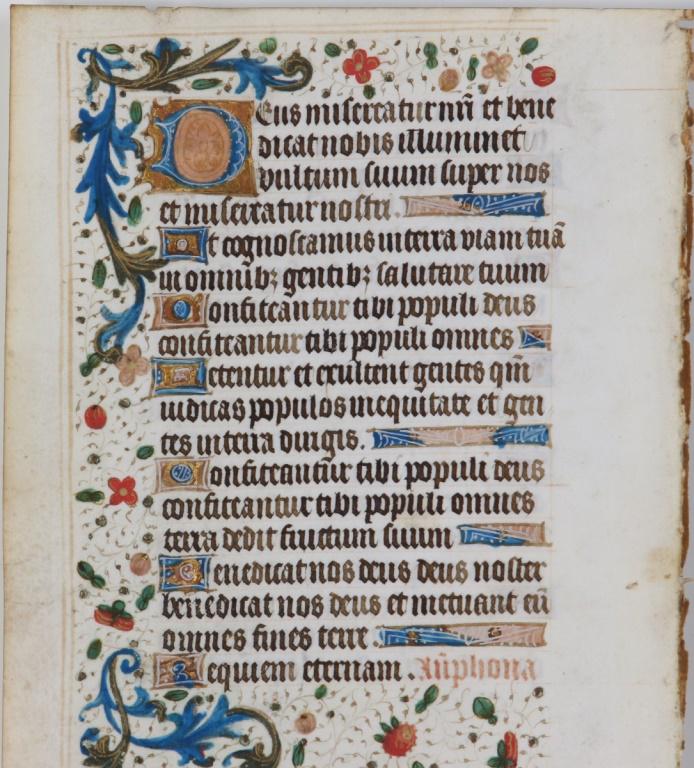 Deus misereatur nr̃i et bene
dicat nobis illuminet
vultum suum super nos
et misereatur nostri.
Et cognoscamus in terra viam tuā
in omnibꝫ gentibꝫ salutare tuum
Confiteantur tibi populi deus
confiteantur tibi populi omnes
Letentur et exultent gentes qm̄
iudicas populos in equitate et gen
tes in terra dirigis.
Confiteantur tibi populi deus
confiteantur tibi populi omnes
terra dedit fructum suum
Benedicat nos deus deus noster
benedicat nos deus et metuant eū
omnes fines terre
Requiem eternam. An̄phona